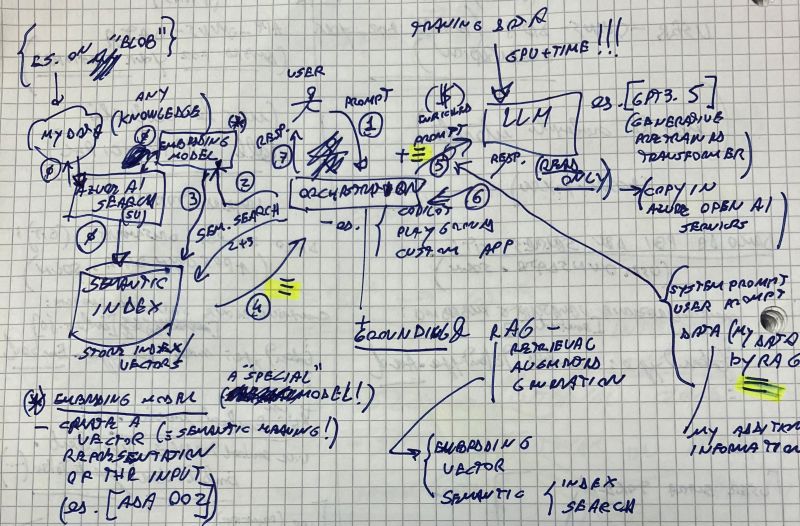 ES. ON "BLOB"
MY DATA
ANY
(KNOWLEDGE)
Ø
Ø
(*)
EMBEDDING
MODEL
AZURE AI
SEARCH
(SU)
Ø
SEMANTIC
INDEX
STORE INDEX/
VECTORS
USER
PROMPT
1
RESP.
7
2
3
SEM. SEARCH
2+3
4
=
ORCHESTRATION
- ES.
COPILOT
PLAYGROUND
CUSTOM APP
TRAINING DATA
GPU+TIME!!!
($)
ENRICHED
PROMPT
+ =
5
LLM
RESP.
6
(READ
ONLY)
ES. [GPT 3.5]
(GENERATIVE
PRETRAINED
TRANSFORMER)
COPY IN
AZURE OPEN AI
SERVICES
SYSTEM PROMPT
USER PROMPT
DATA (MY DATA
BY RAG
=
MY ADDITION
INFORMATION
+
GROUNDING & RAG -
RETRIEVAL
AUGMENTED
GENERATION
EMBEDDING
VECTOR
SEMANTIC
INDEX
SEARCH
(*) EMBEDDING MODEL
A "SPECIAL"
MODEL!)
- CREATE A
VECTOR (= SEMANTIC MEANING!)
REPRESENTATION
OF THE INPUT
(ES. [ADA 002]